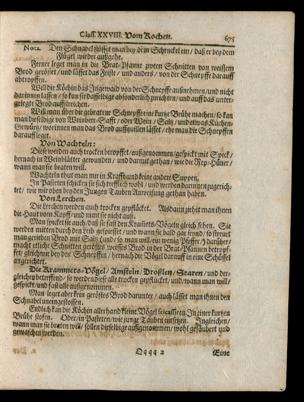 Claſſ. XXVIII. Vom Kochen. 675
Nota. Den Schnabel ſtöſſet man bey dem Schenckel ein, daß er bey dem
Flügel wieder außgehe.
Ferner leget man in die Brat-Pfanne zween Schnitten von weiſſem
Brod geröſtet / und läſſet das Feiſte / und anders / von der Schnepffe darauff
abtropffen.
Will die Köchin das Ingeweid von der Schnepffe außnehmen / und nicht
darinnen laſſen / ſo kan ſie daſſelbige abſonderlich zurichten / und auff das unter-
gelegt Brod auffſtreichen.
Will man über die gebratene Schnepffe eine kurtze Brühe machen / ſo kan
man dieſelbige von Weinbeer-Safft / oder Wein / Saltz / und etwas Kuchen-
Gewürtz / worinnen man das Brod auffquellen läſſet / ehe man die Schnepffen
darauff leget.
Von Wachteln:
Dieſe werden auch trocken beropffet / außgenommen / geſpickt mit Speck /
hernach in Weinblätter gewunden / und darmit gethan / wie die Rep-Hüner /
wann man ſie braten will.
Wachteln thut man nur in Krafft und keine andere Suppen.
In Paſteten ſchicken ſie ſich trefflich wohl / und werden darinn zugerich-
tet / wie wir oben bey den Jungen Tauben Anweiſung gethan haben.
Von Lerchen.
Die Lerchen werden auch trocken gepflücket. Alsdann ziehet man ihnen
die Haut vom Kopff / und nimt ſie nicht auß.
Man ſteckt ſie auch / daß ſie faſt den Kraniets-Vögeln gleich ſehen. Sie
werden mitten durch den Leib geſpiſſet / und wann ſie bald gar ſeynd / ſo ſtreuet
man gerieben Brod mit Saltz (und ſo man will ein wenig Pfeffer /) darüber /
macht etliche Schnitten geröſtet weiſſes Brod in der Brat-Pfannen betropf-
fet / gleichwie bey den Schnepffen / hernach die Vögel darauff in eine Schüſſel
angerichtet.
Die Krammets-Vögel / Amſeln / Droſtlen / Staaren / und der-
gleichen betreffend / ſo werden dieſe alle trocken gepflücket / und / wann man will
geſpickt / und faſt alle außgenommen.
Man leget aber kein geröſtes Brod darunter / auch läſſet man ihnen den
Schnabel unumgeſtoſſen.
Endlich kan die Köchin allerhand kleine Vögel ſein ſieden / in einer kurtzen
Brühe ſtoſen. Oder / in Paſteten / wie junge Tauben einſetzen. Ingleichen /
wann man ſie braten will / ſollen dieſelbige außgenommen / wohl geſäubert und
gewaſchen werden.
Qqqq 2 Eine